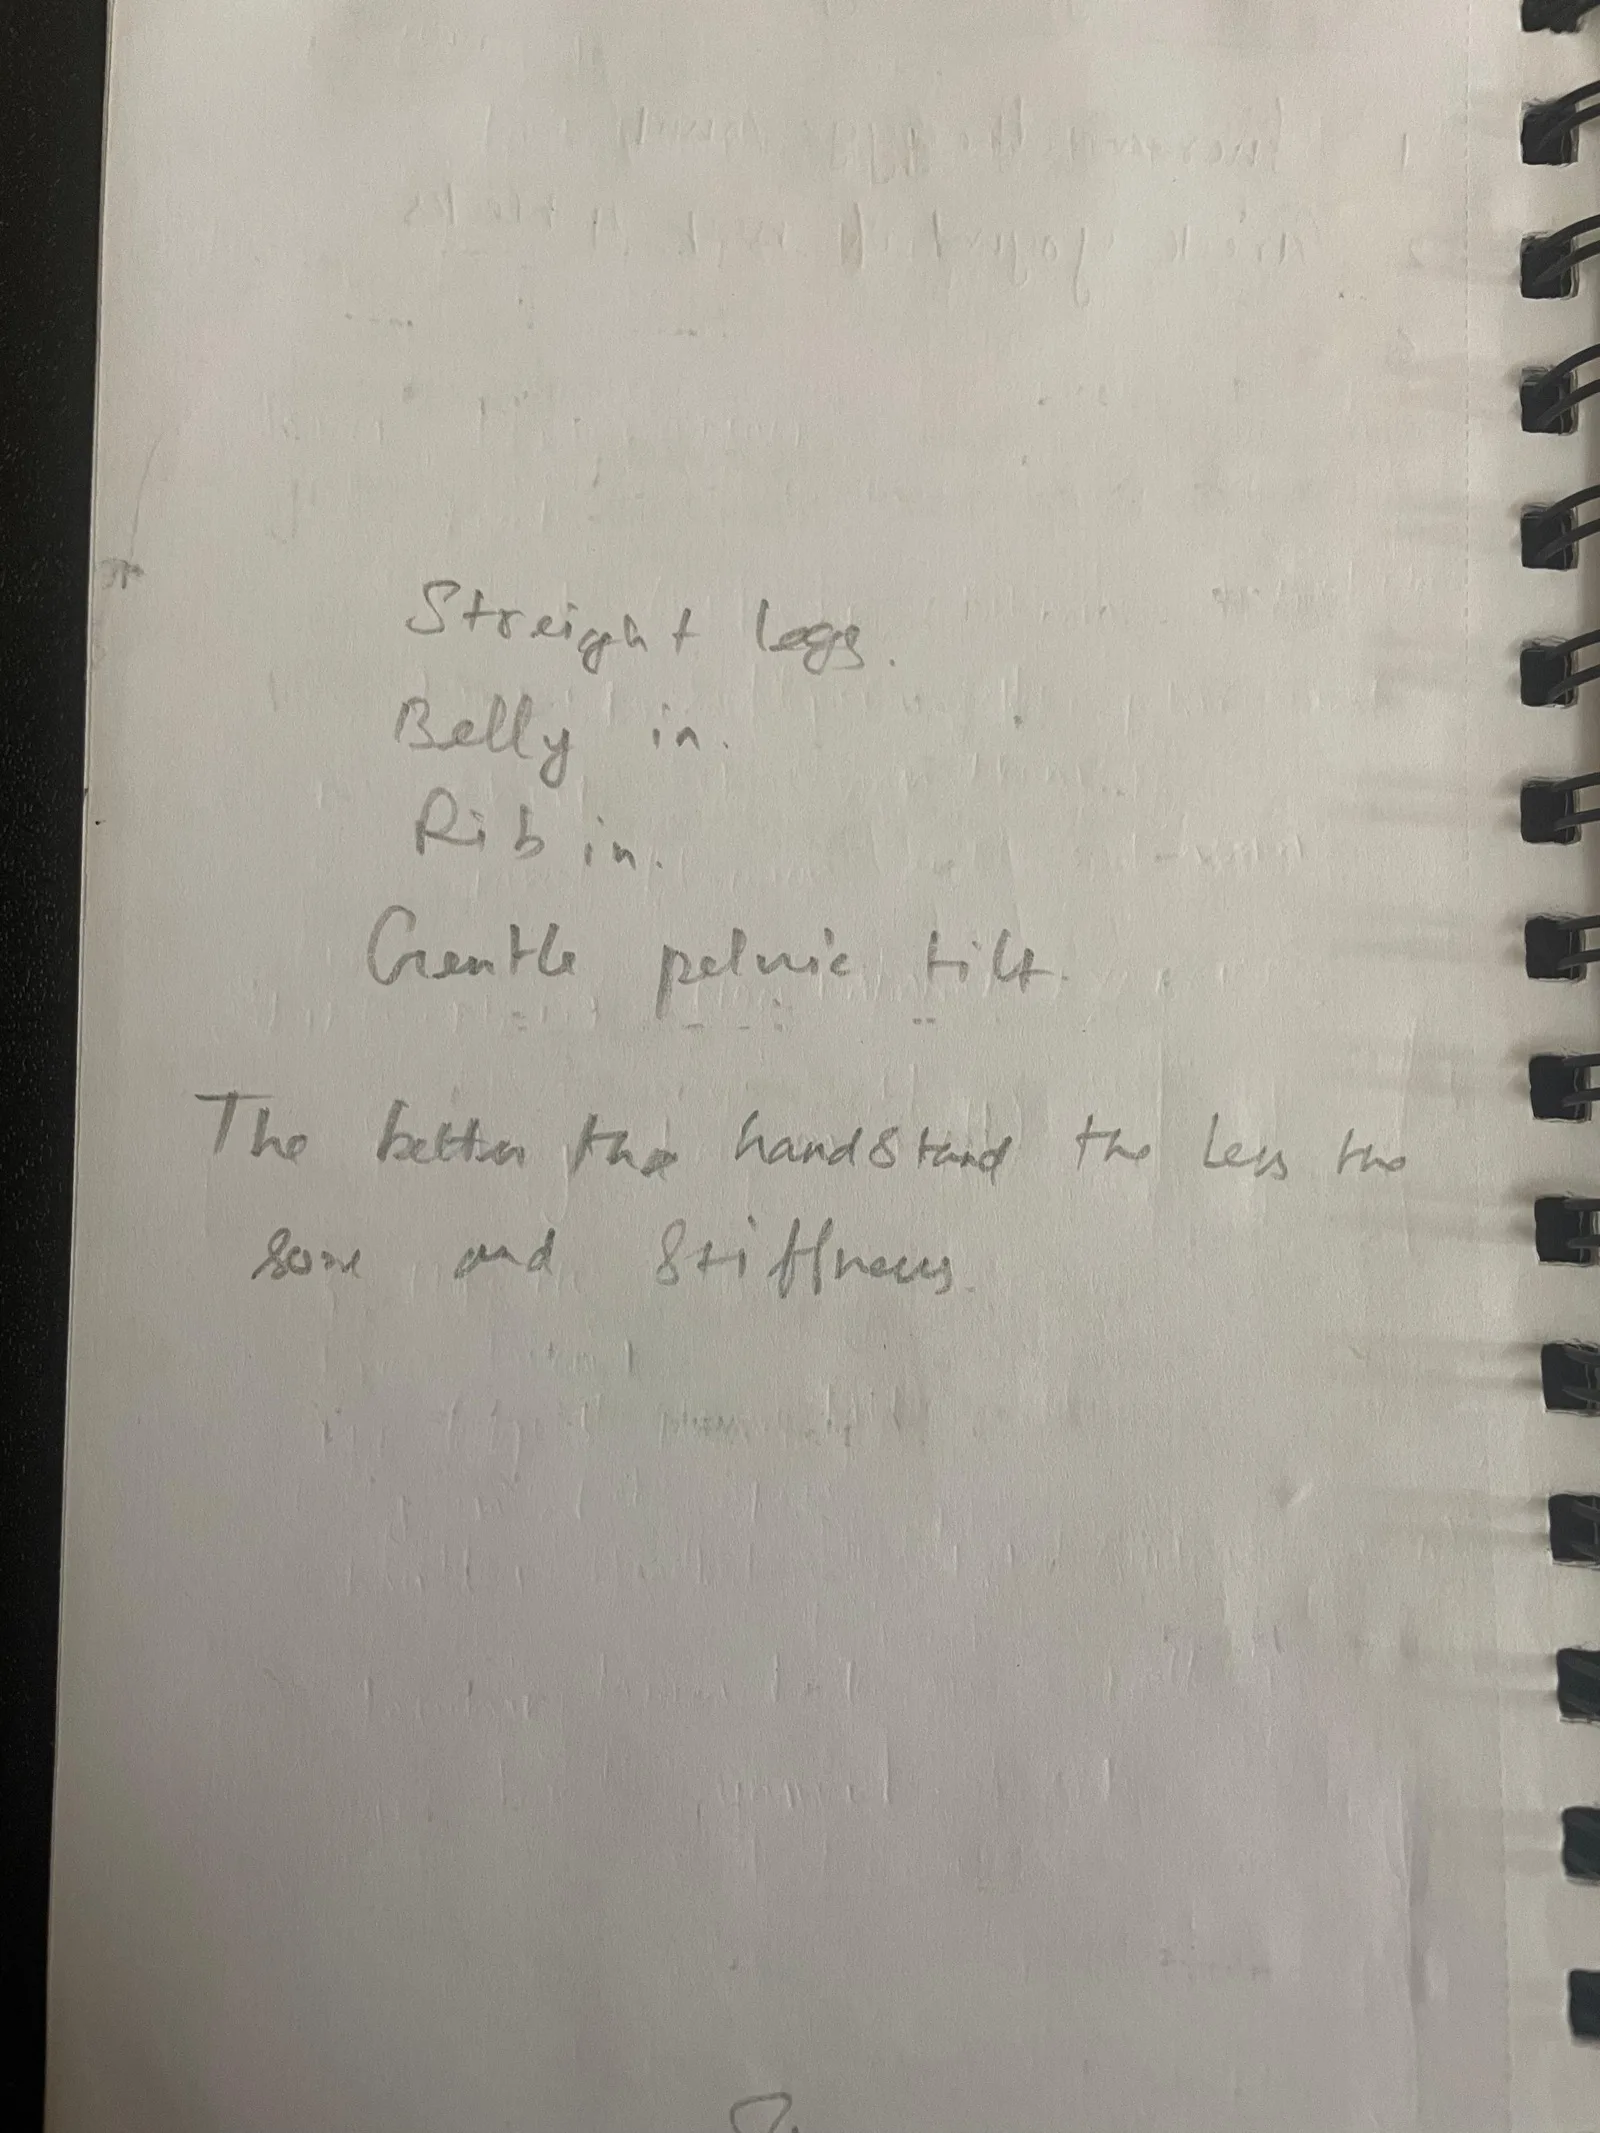 Streight legs.
Belly in.
Rib in.
Gentle pelvic tilt.
The better the handstand the less the
sore and stiffness.